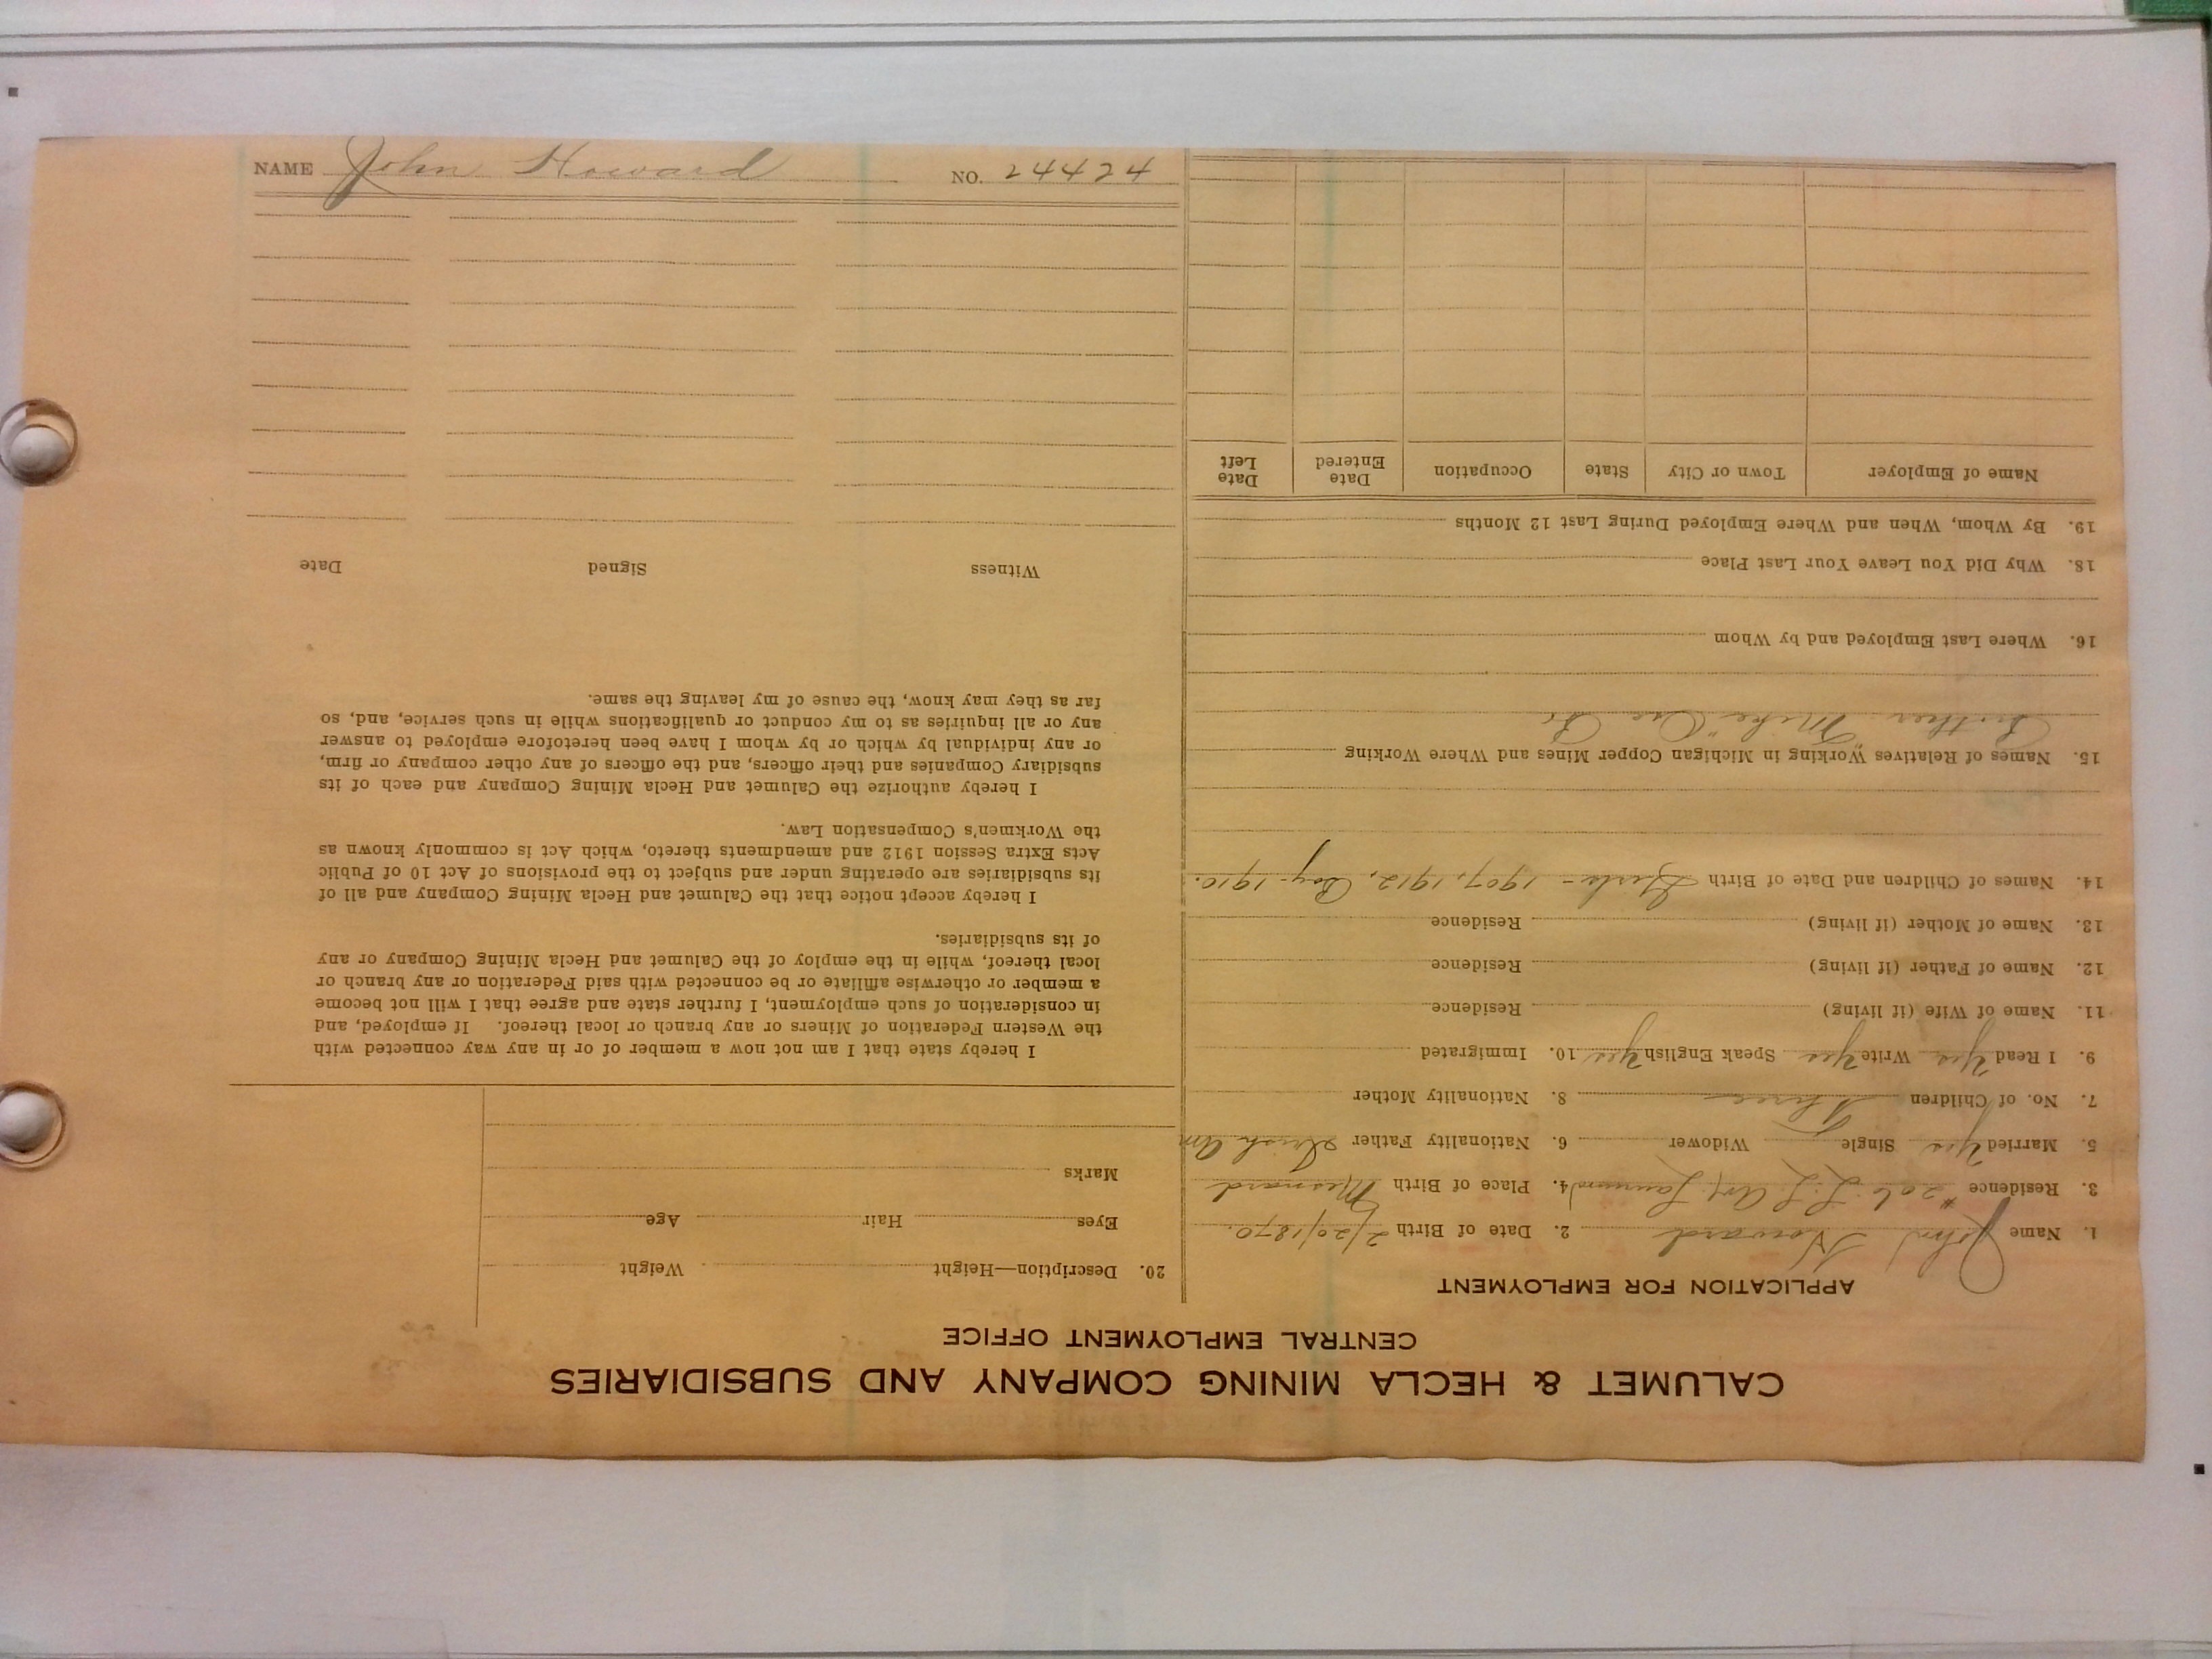 CALUMET & HECLA MINING COMPANY AND SUBSIDIARIES
CENTRAL EMPLOYMENT OFFICE
APPLICATION FOR EMPLOYMENT
1. Name John Howard 2. Date of Birth 2/20/1870.
3. Residence #206 L.L. Av. 4. Place of Birth Mesnard
5. Married Yes Single Widower 6. Nationality Father Irish Am
7. No. of Children Three 8. Nationality Mother
9. I Read Yes Write Yes Speak English Yes 10. Immigrated
11. Name of Wife (if living) Residence
12. Name of Father (if living) Residence
13. Name of Mother (if living) Residence
14. Names of Children and Date of Birth Girls - 1907, 1912, Boy - 1910.
15. Names of Relatives Working in Michigan Copper Mines and Where Working
Brother "Mike"
16. Where Last Employed and by Whom
18. Why Did You Leave Your Last Place
19. By Whom, When and Where Employed During Last 12 Months
Name of Employer Town or City State Occupation Date Entered Date Left
20. Description—Height Weight
Eyes Hair Age
Marks
I hereby state that I am not now a member of or in any way connected with
the Western Federation of Miners or any branch or local thereof. If employed, and
in consideration of such employment, I further state and agree that I will not become
a member or otherwise affiliate or be connected with said Federation or any branch or
local thereof, while in the employ of the Calumet and Hecla Mining Company or any
of its subsidiaries.
I hereby accept notice that the Calumet and Hecla Mining Company and all of
its subsidiaries are operating under and subject to the provisions of Act 10 of Public
Acts Extra Session 1912 and amendments thereto, which Act is commonly known as
the Workmen's Compensation Law.
I hereby authorize the Calumet and Hecla Mining Company and each of its
subsidiary Companies and their officers, and the officers of any other company or firm,
or any individual by which or by whom I have been heretofore employed to answer
any or all inquiries as to my conduct or qualifications while in such service, and, so
far as they may know, the cause of my leaving the same.
Witness Signed Date
NAME John Howard NO. 24424